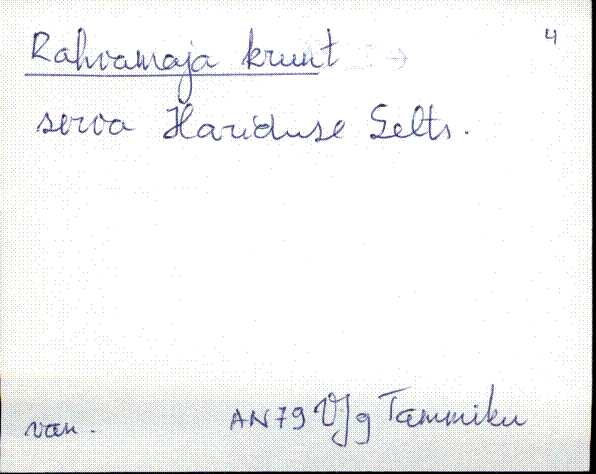 4
Rahvamaja krunt
serva Hariduse Selts.
van. AN79 VJg Tammiku